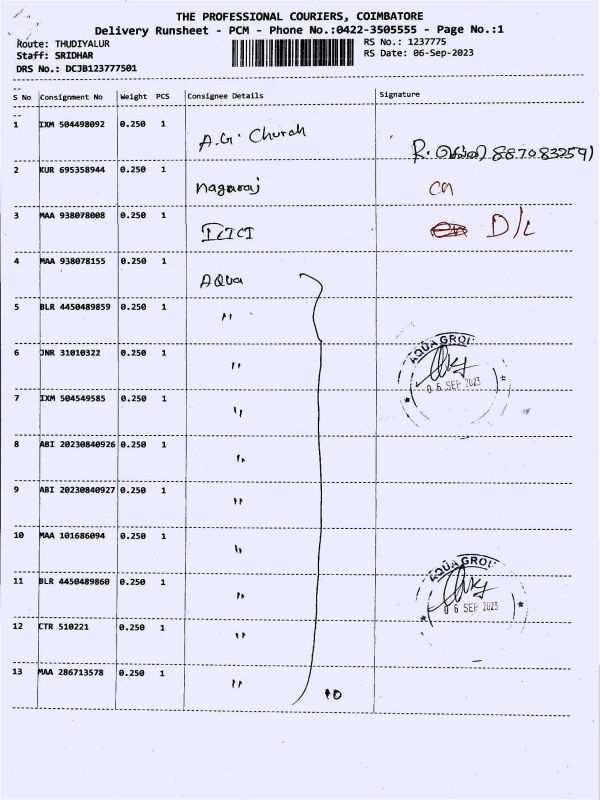 THE PROFESSIONAL COURIERS, COIMBATORE
Delivery Runsheet - PCM - Phone No.:0422-3505555 - Page No.:1
Route: THUDIYALUR RS No.: 1237775
Staff: SRIDHAR RS Date: 06-Sep-2023
DRS No.: DCJB123777501
S No Consignment No Weight PCS Consignee Details Signature
1 IXM 504498092 0.250 1 A.G. Church R. 8870832591
2 KUR 695358944 0.250 1 Nagaraj
3 MAA 938078008 0.250 1 D/L
4 MAA 938078155 0.250 1 AQua
5 BLR 4450489859 0.250 1 "
6 JNR 31010322 0.250 1 " AQUA GROU
06 SEP 2023
7 IXM 504549585 0.250 1 "
8 ABI 20230840926 0.250 1 "
9 ABI 20230840927 0.250 1 "
10 MAA 101686094 0.250 1 "
11 BLR 4450489860 0.250 1 " AQUA GROU
06 SEP 2023
12 CTR 510221 0.250 1 "
13 MAA 286713578 0.250 1 " 10